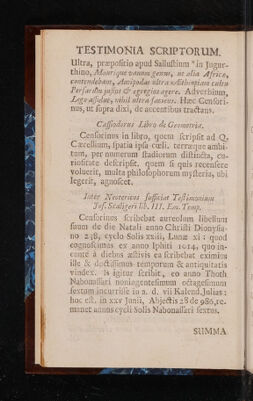 TESTIMONIA SCRIPTORUM.
Ultra, præpositio apud Sallustium in Jugur-
thino,
contendebant,
Adverbium,
Hæc Censori-
nus, ut supra dixi, de accentibus tractans.
Cassiodorus Libro de Geometria.
Censorinus in libro, quem scripsit ad Q.
Cærellium, spatia ipsa cœli, terræque ambi-
tum, per numerum stadiorum distincta, cu-
riositate descripsit. quem si quis recensere
voluerit, multa philosophorum mysteria, ubi
legerit, agnoscet.
Inter Neotericos sufficiat Testimonium
Jos. Scaligeri lib. III. Em. Temp.
Censorinus scribebat aureolum libellum
suum de die Natali anno Christi Dionysia-
no 238, cyclo Solis xxiii, Lunæ xi: quod
cognoscimus ex anno Iphiti 1014, quo in-
eunte à diebus æstivis ea scribebat eximius
ille & doctissimus temporum & antiquitatis
vindex. Is igitur scribit, eo anno Thoth
Nabonassari noningentesimum octogesimum
sextum incurrisse in a. d. vii Kalend. Julias:
hoc est, in xxv Junii, Abjectis 28 de 986, re-
manet annus cycli Solis Nabonassari sextus.
SUMMA